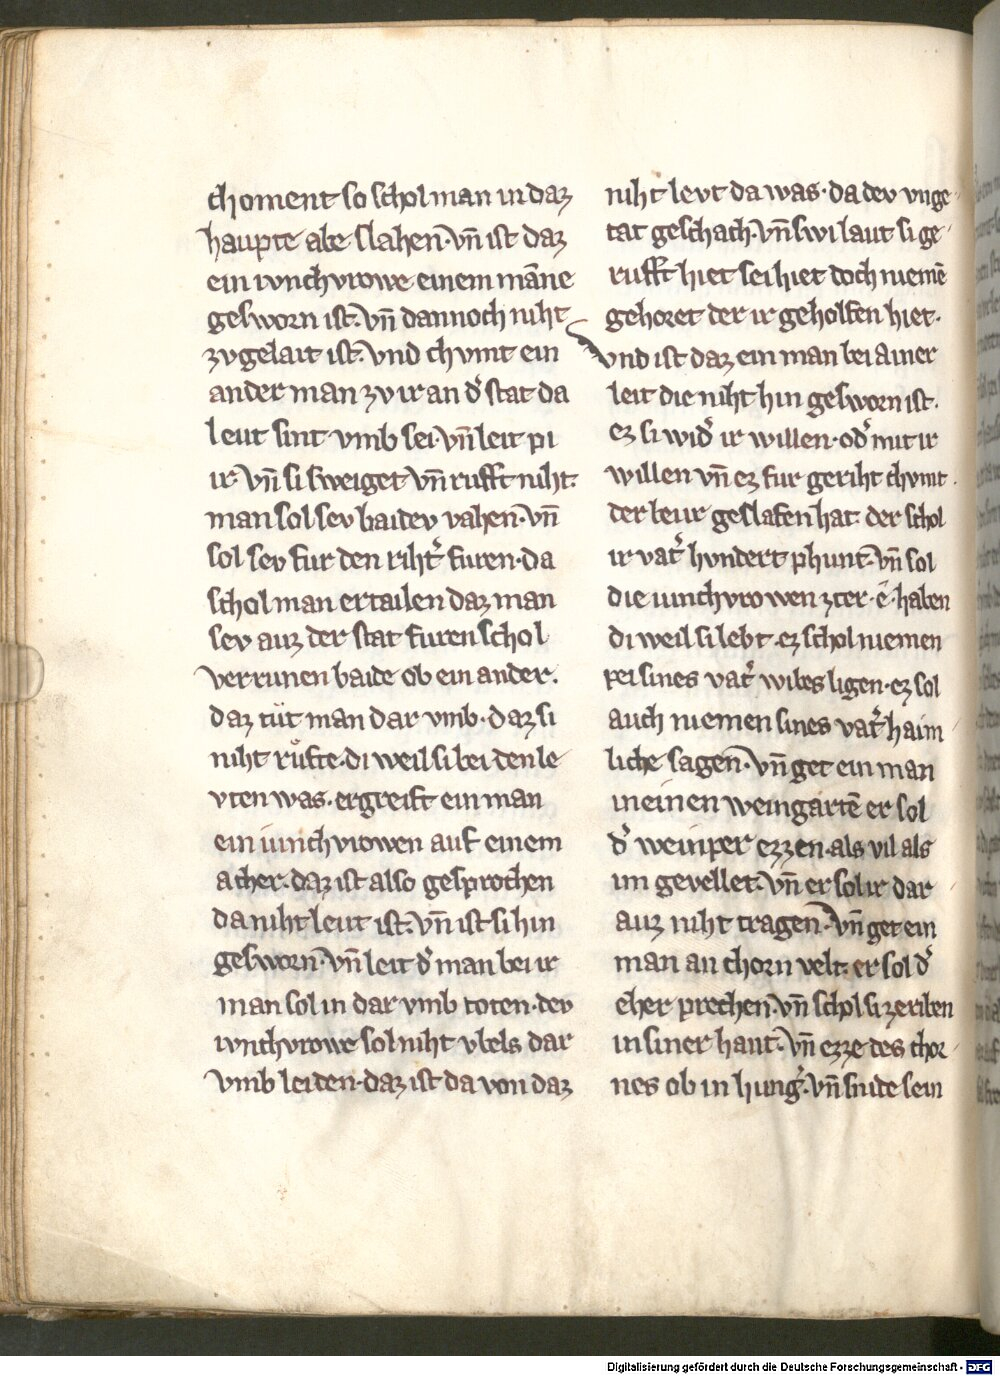 choment so schol man in daz
haupte abe slahen. vn̄ ist daz
ein ivnchvrowe einem māne
gesworn ist. vn̄ dannoch niht
zvgelait ist. Vnd chvmt ein
ander man zv ir an d̾ stat da
leut sint vmb sei. vn̄ leit pi
ir. Vn̄ si sweiget vn̄ rufft niht.
man sol sev baidev vahen. vn̄
sol sev fur den riht̾ furen. da
schol man ertailen daz man
sev auz der stat furen schol
verrunen baide ob ein ander.
daz tůt man dar vmb. daz si
niht růfte. di weil si bei den le
vten was. ergreift ein man
ein iunchvrowen auf einem
acher. daz ist also gesprochen
da niht leut ist. vn̄ ist si hin
gesworn. vn̄ leit d̾ man bei ir
man sol in dar vmb toten. dev
ivnchvrowe sol niht vbels dar
vmb leiden. daz ist da von daz
niht levt da was. da dev vnge
tat geschach. vn̄ swi laut si ge
rufft hiet sei hiet doch niemē
gehoret der ir geholfen hiet.
Vnd ist daz ein man bei ainer
leit die niht hin gesworn ist.
ez si wid̾ ir willen. od̾ mit ir
willen vn̄ ez fur geriht chvmt.
der beur geslafen hat. der schol
ir vat̾ hvndert phunt. vn̄ sol
die iunchvrowen zter. ē. haben
di weil si lebt. ez schol niemen
pei sines vat̾ wibes ligen. ez sol
auch niemen sines vat̾ haim
liche sagen. Vn̄ get ein man
in einen weingartē er sol
d̾ weinper ezzen. als vil als
im gevellet. Vn̄ er sol ir dar
auz niht tragen. Vn̄ get ein
man an chorn velt. er sol d̾
eher prechen. vn̄ schol si zeriben
in siner hant. Vn̄ ezze des chor
nes ob in hung̾. vn̄ snide sein
Digitalisierung gefördert durch die Deutsche Forschungsgemeinschaft - DFG